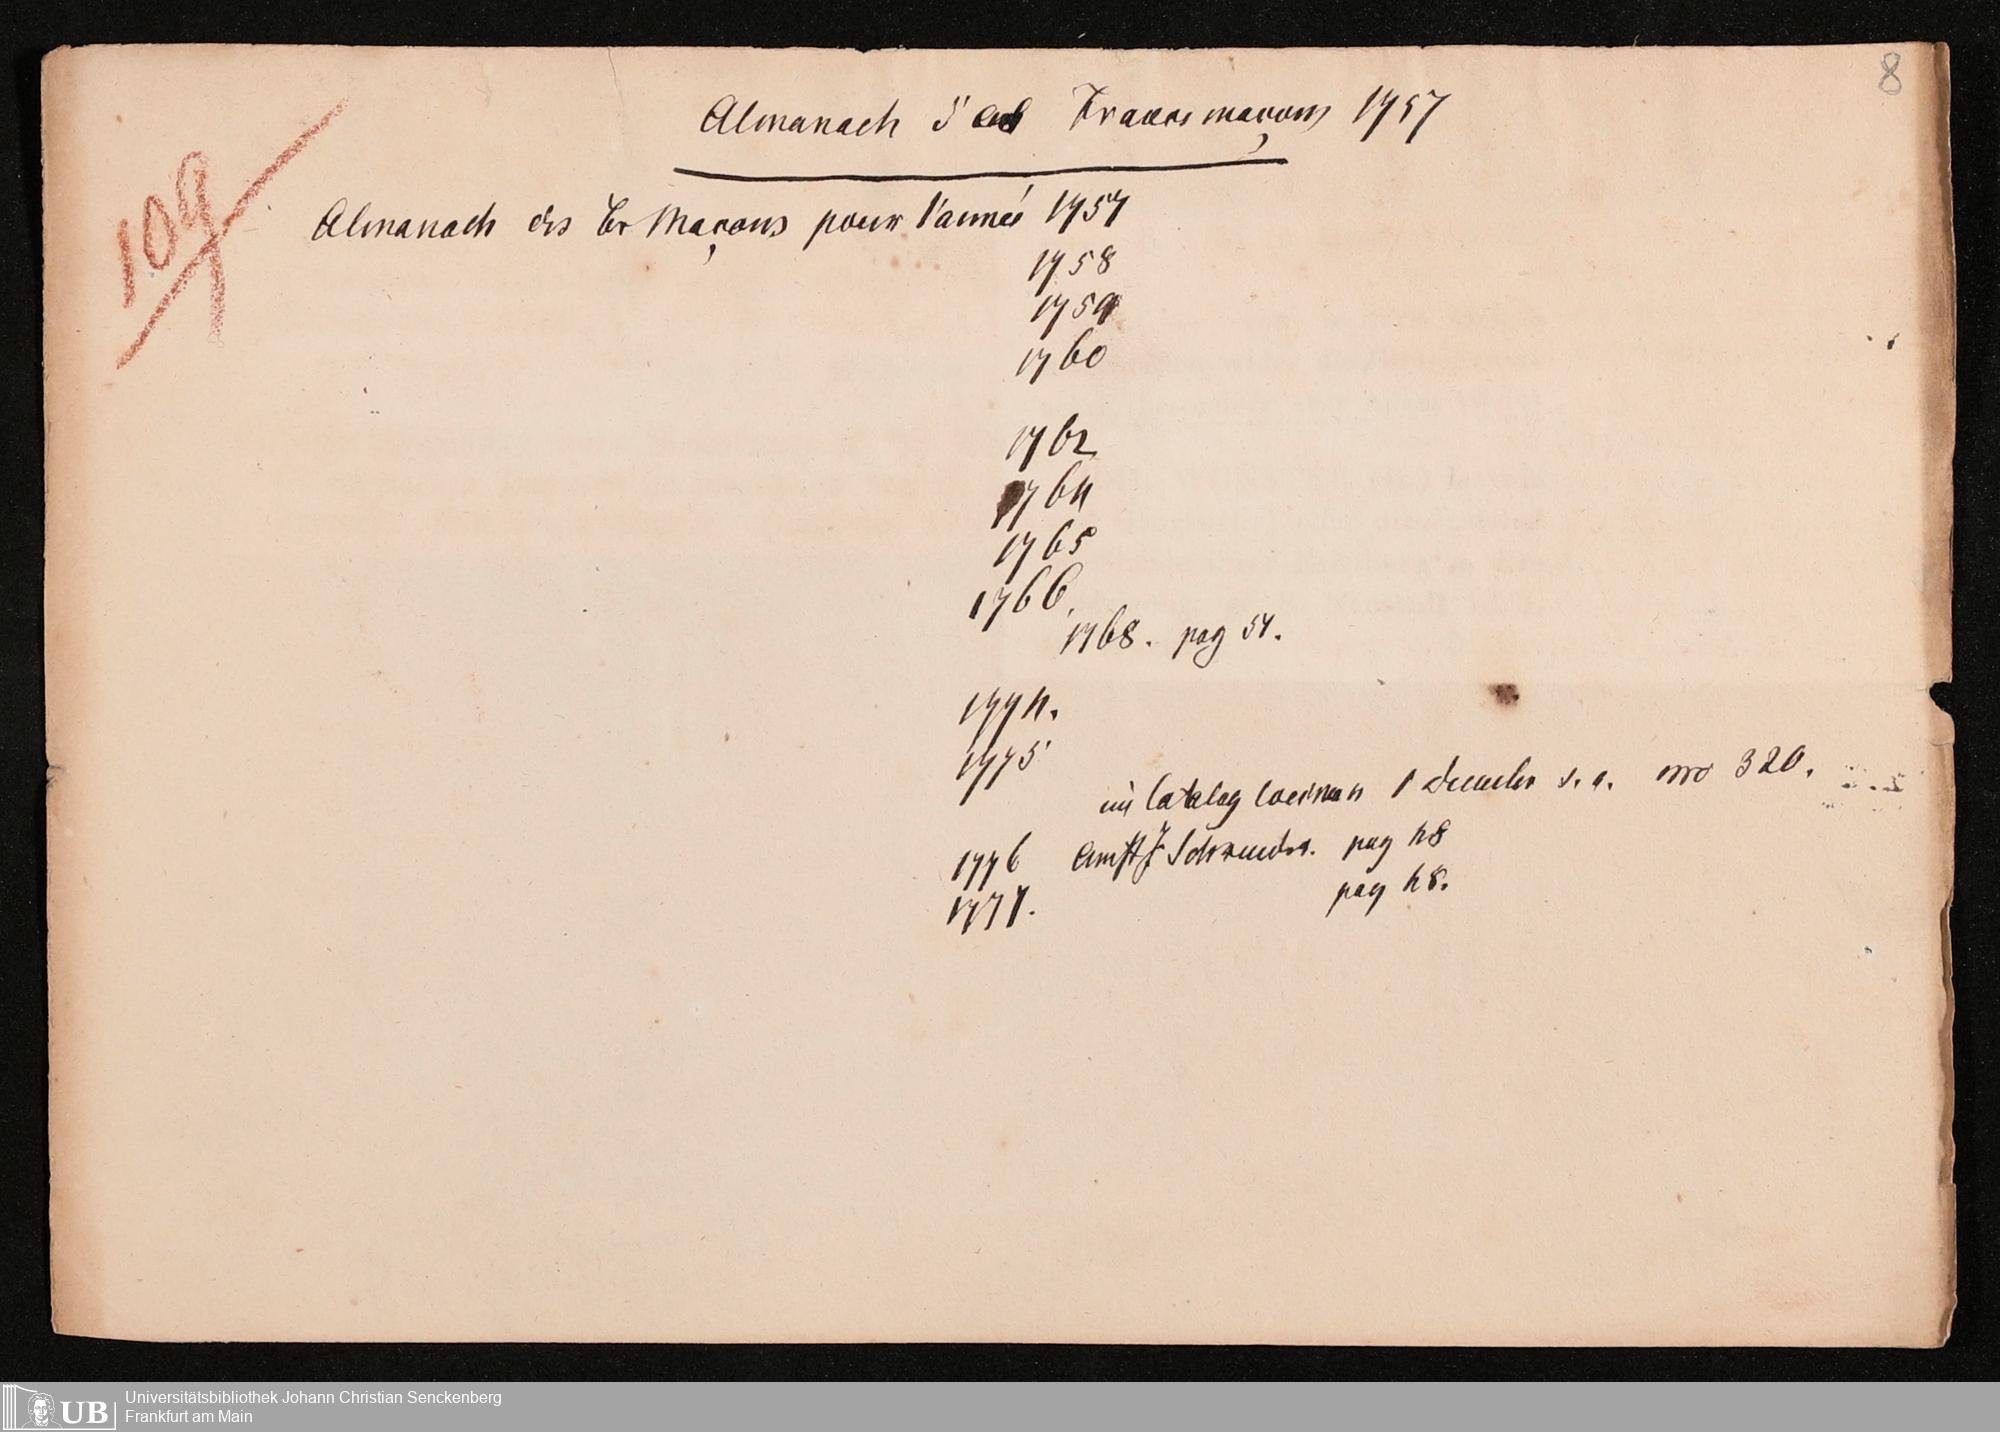 8
Almanach des Francs maçons 1757
109
Almanach des fr Maçons pour l'année 1757
1758
1759
1760
1762
1764
1765
1766.
1768. pag 57.
1774.
1775
im Catalog 1 December s. a. nro 320.
1776 Amst Schreuder. pag 48
1777. pag 48.
UB
Universitätsbibliothek Johann Christian Senckenberg
Frankfurt am Main